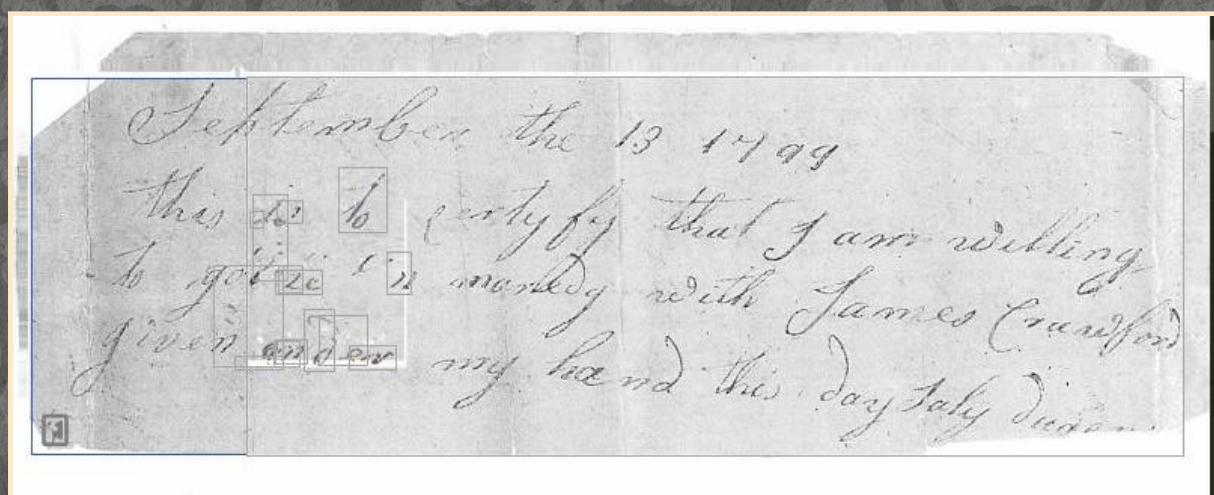 September the 13 1799
this is to certyfy that I am willing
to goi in maredg with James Crawford
given onder my hand this day Saly